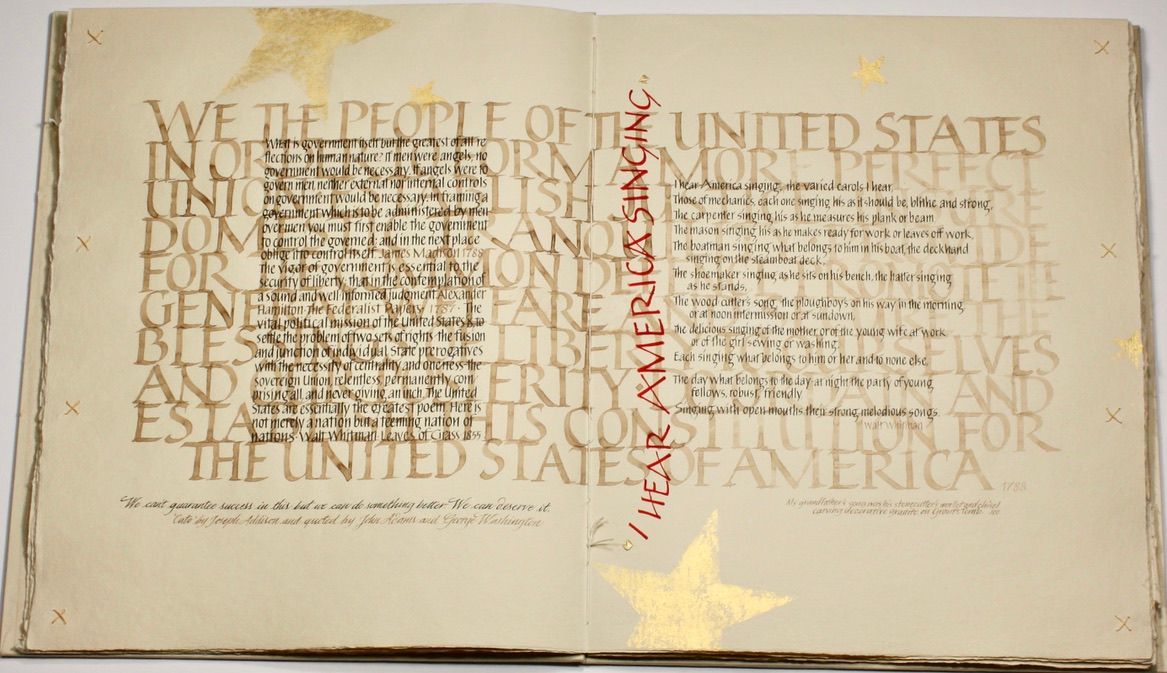 WE THE PEOPLE OF THE UNITED STATES
IN OR FORM A MORE PERFECT
UNIO LISH URE
DOM RANQU IDE
FOR ON DEFEN OTE THE
GENE FARE AN THE
BLES LIBER OURSELVES
AND ERITY AIN AND
ESTA HIS CONSTITUTION FOR
THE UNITED STATES OF AMERICA 1788
What is government itself but the greatest of all re
flections on human nature? If men were angels, no
government would be necessary. If angels were to
govern men, neither external nor internal controls
on government would be necessary. In framing a
government which is to be administered by men
over men you must first enable the government
to control the governed; and in the next place
oblige it to control itself. James Madison 1788
The vigor of government is essential to the
security of liberty, that in the contemplation of
a sound and well informed judgment Alexander
Hamilton · The Federalist Papers, 1787 · The
vital political mission of the United States is to
settle the problem of two sets of rights the fusion
and junction of individual State prerogatives
with the necessity of centrality and oneness the
sovereign Union, relentless, permanently com
prising all, and never giving an inch. The United
States are essentially the greatest poem. Here is
not merely a nation but a teeming nation of
nations · Walt Whitman Leaves of Grass 1855
We can't guarantee success in this but we can do something better. We can deserve it.
Cato by Joseph Addison and quoted by John Adams and George Washington
I HEAR AMERICA SINGING
I hear America singing, the varied carols I hear
Those of mechanics, each one singing his as it should be, blithe and strong,
The carpenter singing his as he measures his plank or beam
The mason singing his as he makes ready for work or leaves off work,
The boatman singing what belongs to him in his boat, the deckhand
singing on the steamboat deck,
The shoemaker singing as he sits on his bench, the hatter singing
as he stands,
The wood cutter's song, the ploughboy's on his way in the morning
or at noon intermission or at sundown,
The delicious singing of the mother, or of the young wife at work
or of the girl sewing or washing.
Each singing what belongs to him or her and to none else.
The day what belongs to the day-at night the party of young
fellows, robust, friendly
Singing with open mouths their strong melodious songs.
Walt Whitman
My grandfather's song was his stonecutter's mallet and chisel
carving decorative granite on Grant's Tomb.